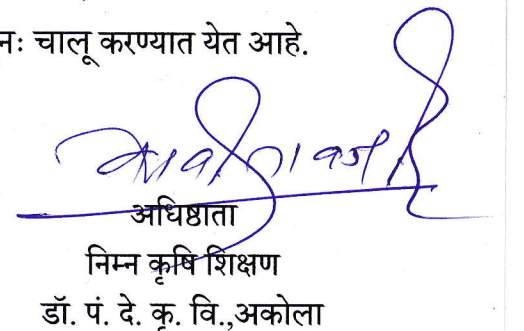 नः चालू करण्यात येत आहे.
अधिष्ठाता
निम्न कृषि शिक्षण
डॉ. पं. दे. कृ. वि.,अकोला